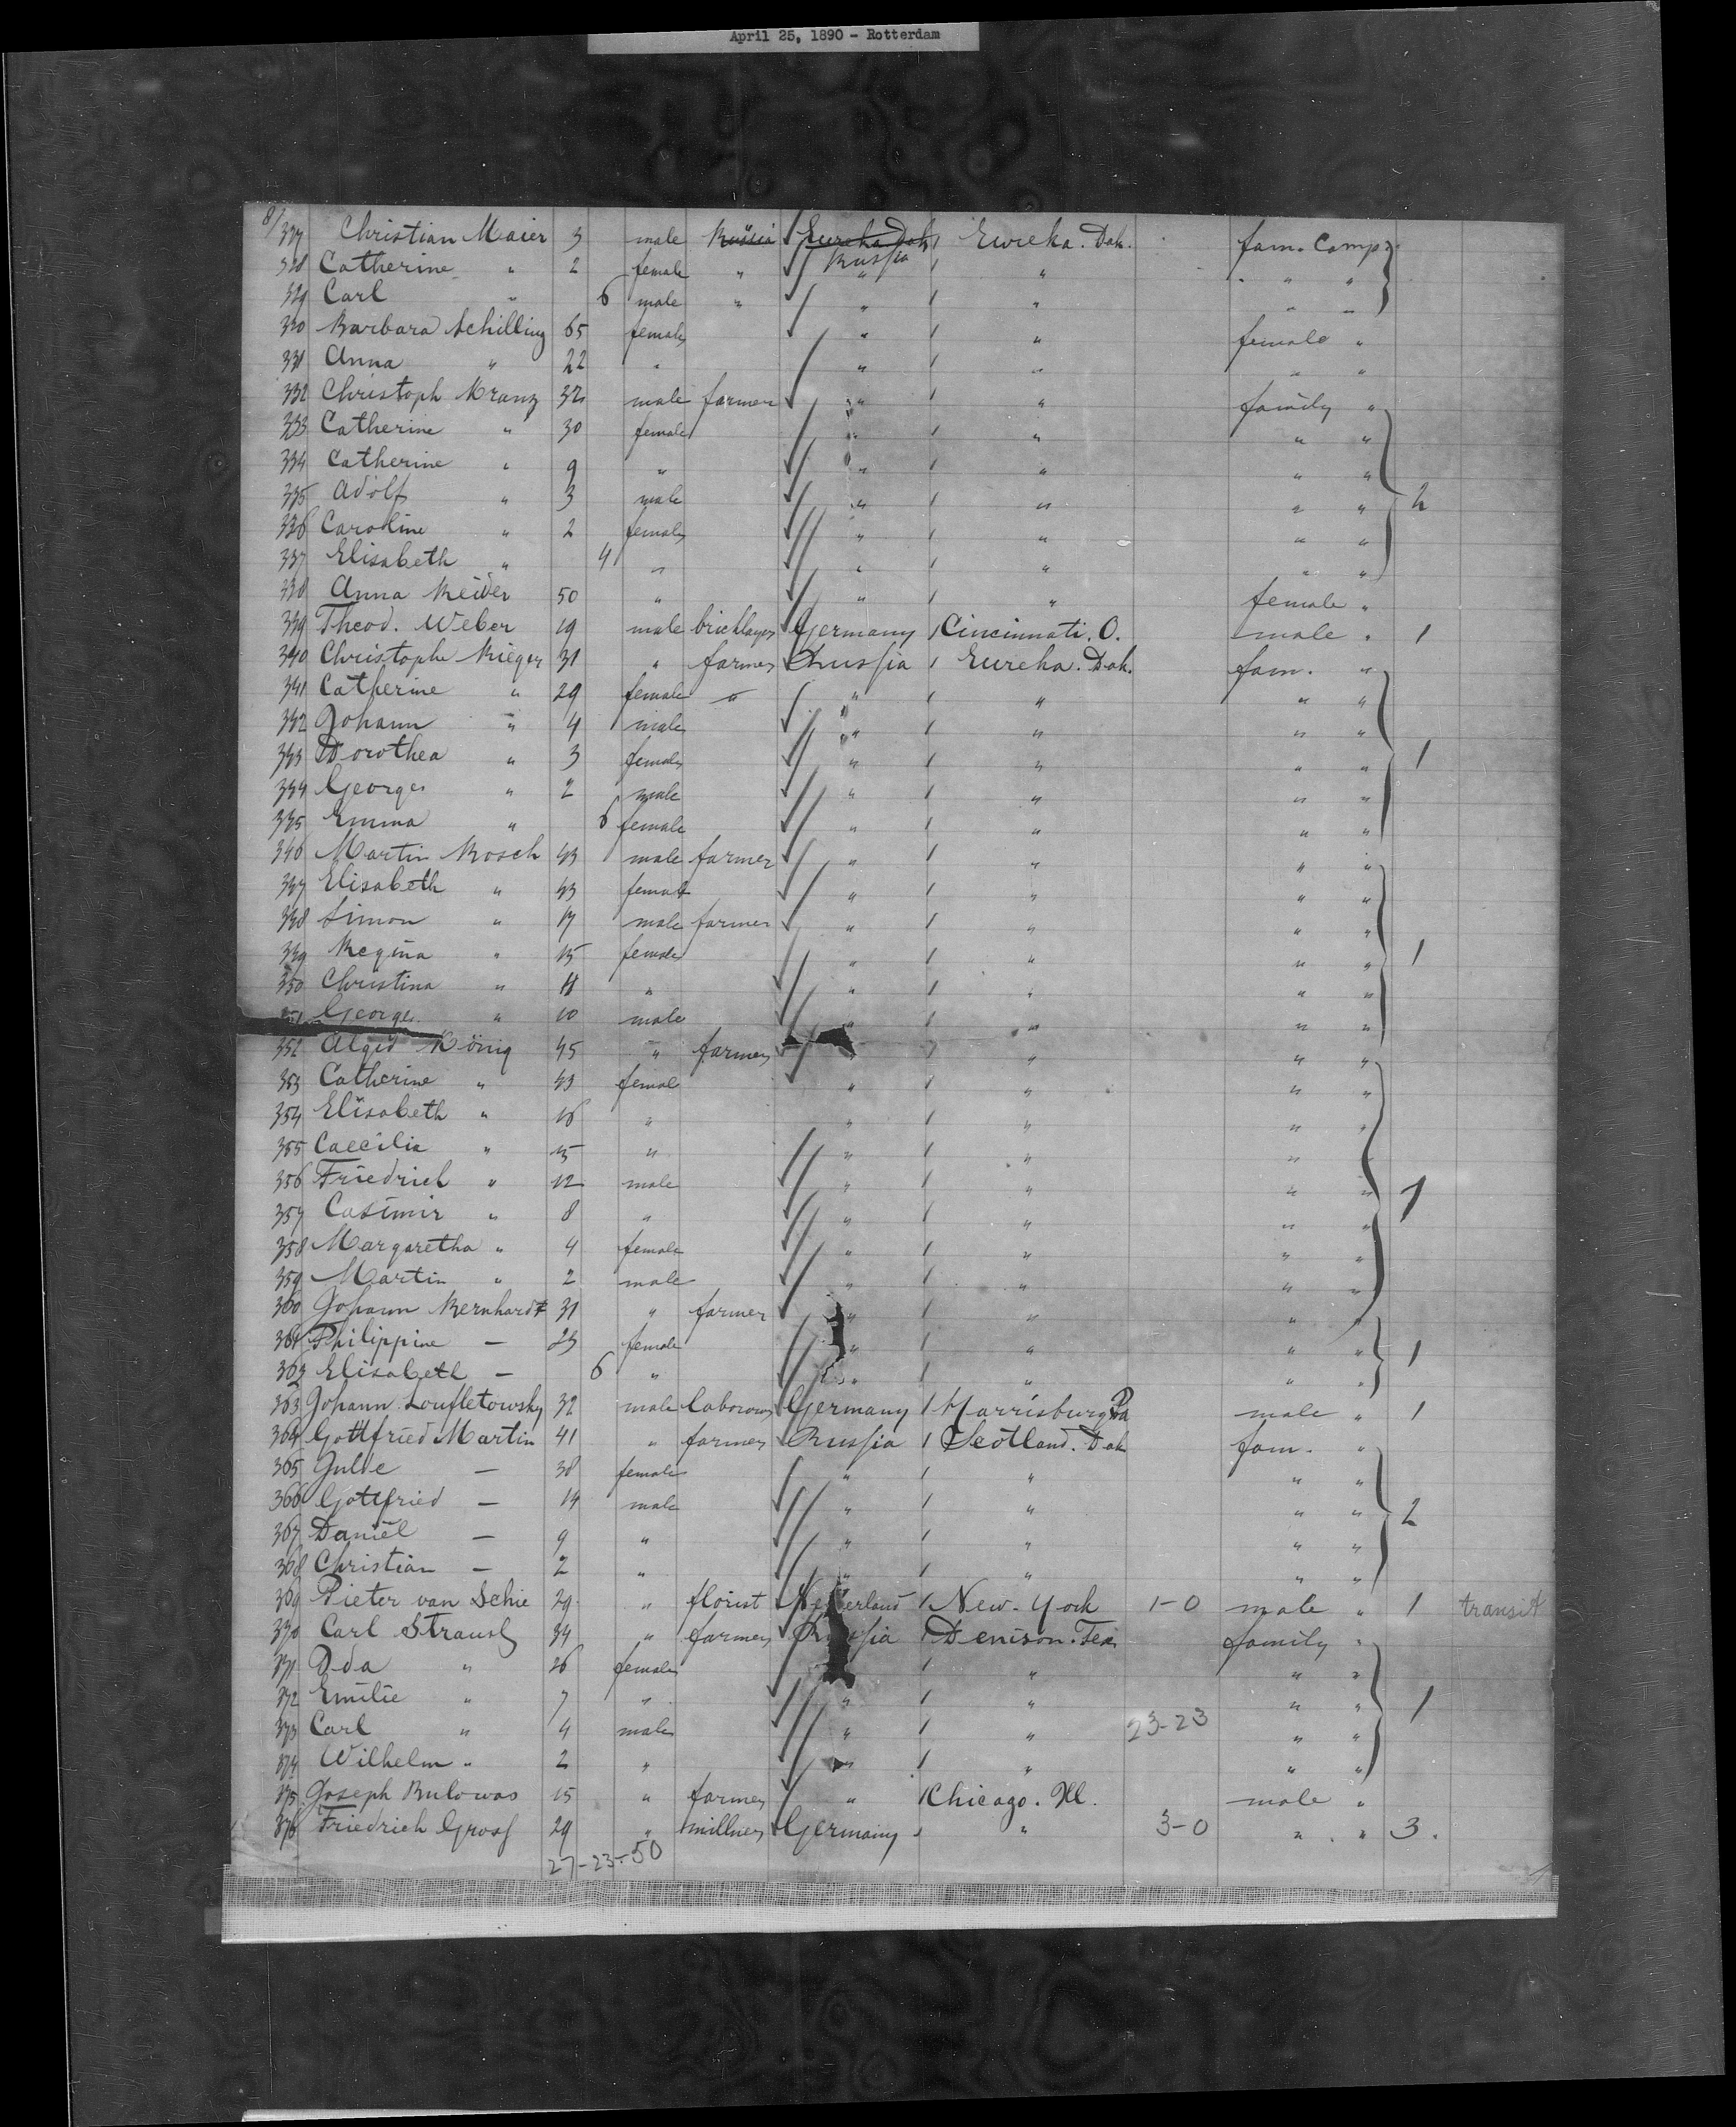 April 25, 1890 - Rotterdam
8/
327 Christian Maier 3 male Russia Eureka Dak Eureka. Dak. fam. Comp.
Russia
328 Catherine " 2 female " " " " "
329 Carl " 6 male " " " " "
330 Barbara Schilling 65 female " " female "
331 Anna " 22 " " " " "
332 Christoph Kranz 32 male farmer " " family "
333 Catherine " 30 female " " " "
334 Catherine " 9 " " " " "
335 Adolf " 3 male " " " " 2
336 Caroline " 2 female " " " "
337 Elisabeth " 4 " " " " "
338 Anna Keider 50 " " " female "
339 Theod. Weber 19 male bricklayer Germany Cincinnati. O. male " 1
340 Christophe Rieger 31 " farmer Russia Eureka. Dak. fam. "
341 Catherine " 29 female " " " " "
342 Johann " 4 male " " " "
343 Dorothea " 3 female " " " " 1
344 George " 2 male " " " "
345 Emma " 6 female " " " "
346 Martin Rosch 43 male farmer " " " "
347 Elisabeth " 43 female " " " "
348 Simon " 17 male farmer " " " "
349 Regina " 15 female " " " " 1
350 Christina " 11 " " " " "
351 George " 10 male " " " "
352 König 45 " farmer " " " "
353 Catherine " 43 female " " " "
354 Elisabeth " 16 " " " " "
355 Caecilia " 15 " " " " "
356 Friedrich " 12 male " " " " 1
357 Casimir " 8 " " " " "
358 Margaretha " 4 female " " " "
359 Martin " 2 male " " " "
360 Johann Bernhardt 31 " farmer " " " "
361 Philippine — 23 female " " " " 1
362 Elisabeth — 6 " " " " "
363 Johann 32 male laborer Germany Harrisburg Pa male " 1
364 Gottfried Martin 41 " farmer Russia Scotland. Dak fam. "
365 Julie — 38 female " " " "
366 Gottfried — 14 male " " " " 2
367 Daniel — 9 " " " " "
368 Christian — 2 " " " " "
369 Pieter van Schie 29 " florist Nederland New-York 1-0 male " 1 transit
370 Carl Strauss 34 " farmer Russia Denison. Tex family "
371 Ida " 26 female " " "
372 Emilie " 7 " " " " " 1
373 Carl " 4 male " " 23-23 " "
374 Wilhelm " 2 " " " " "
375 Joseph Bulowas 15 " farmer " Chicago. Ill. male "
376 Friedrich Gross 29 " millner Germany " 3-0 " " 3.
27-23-50